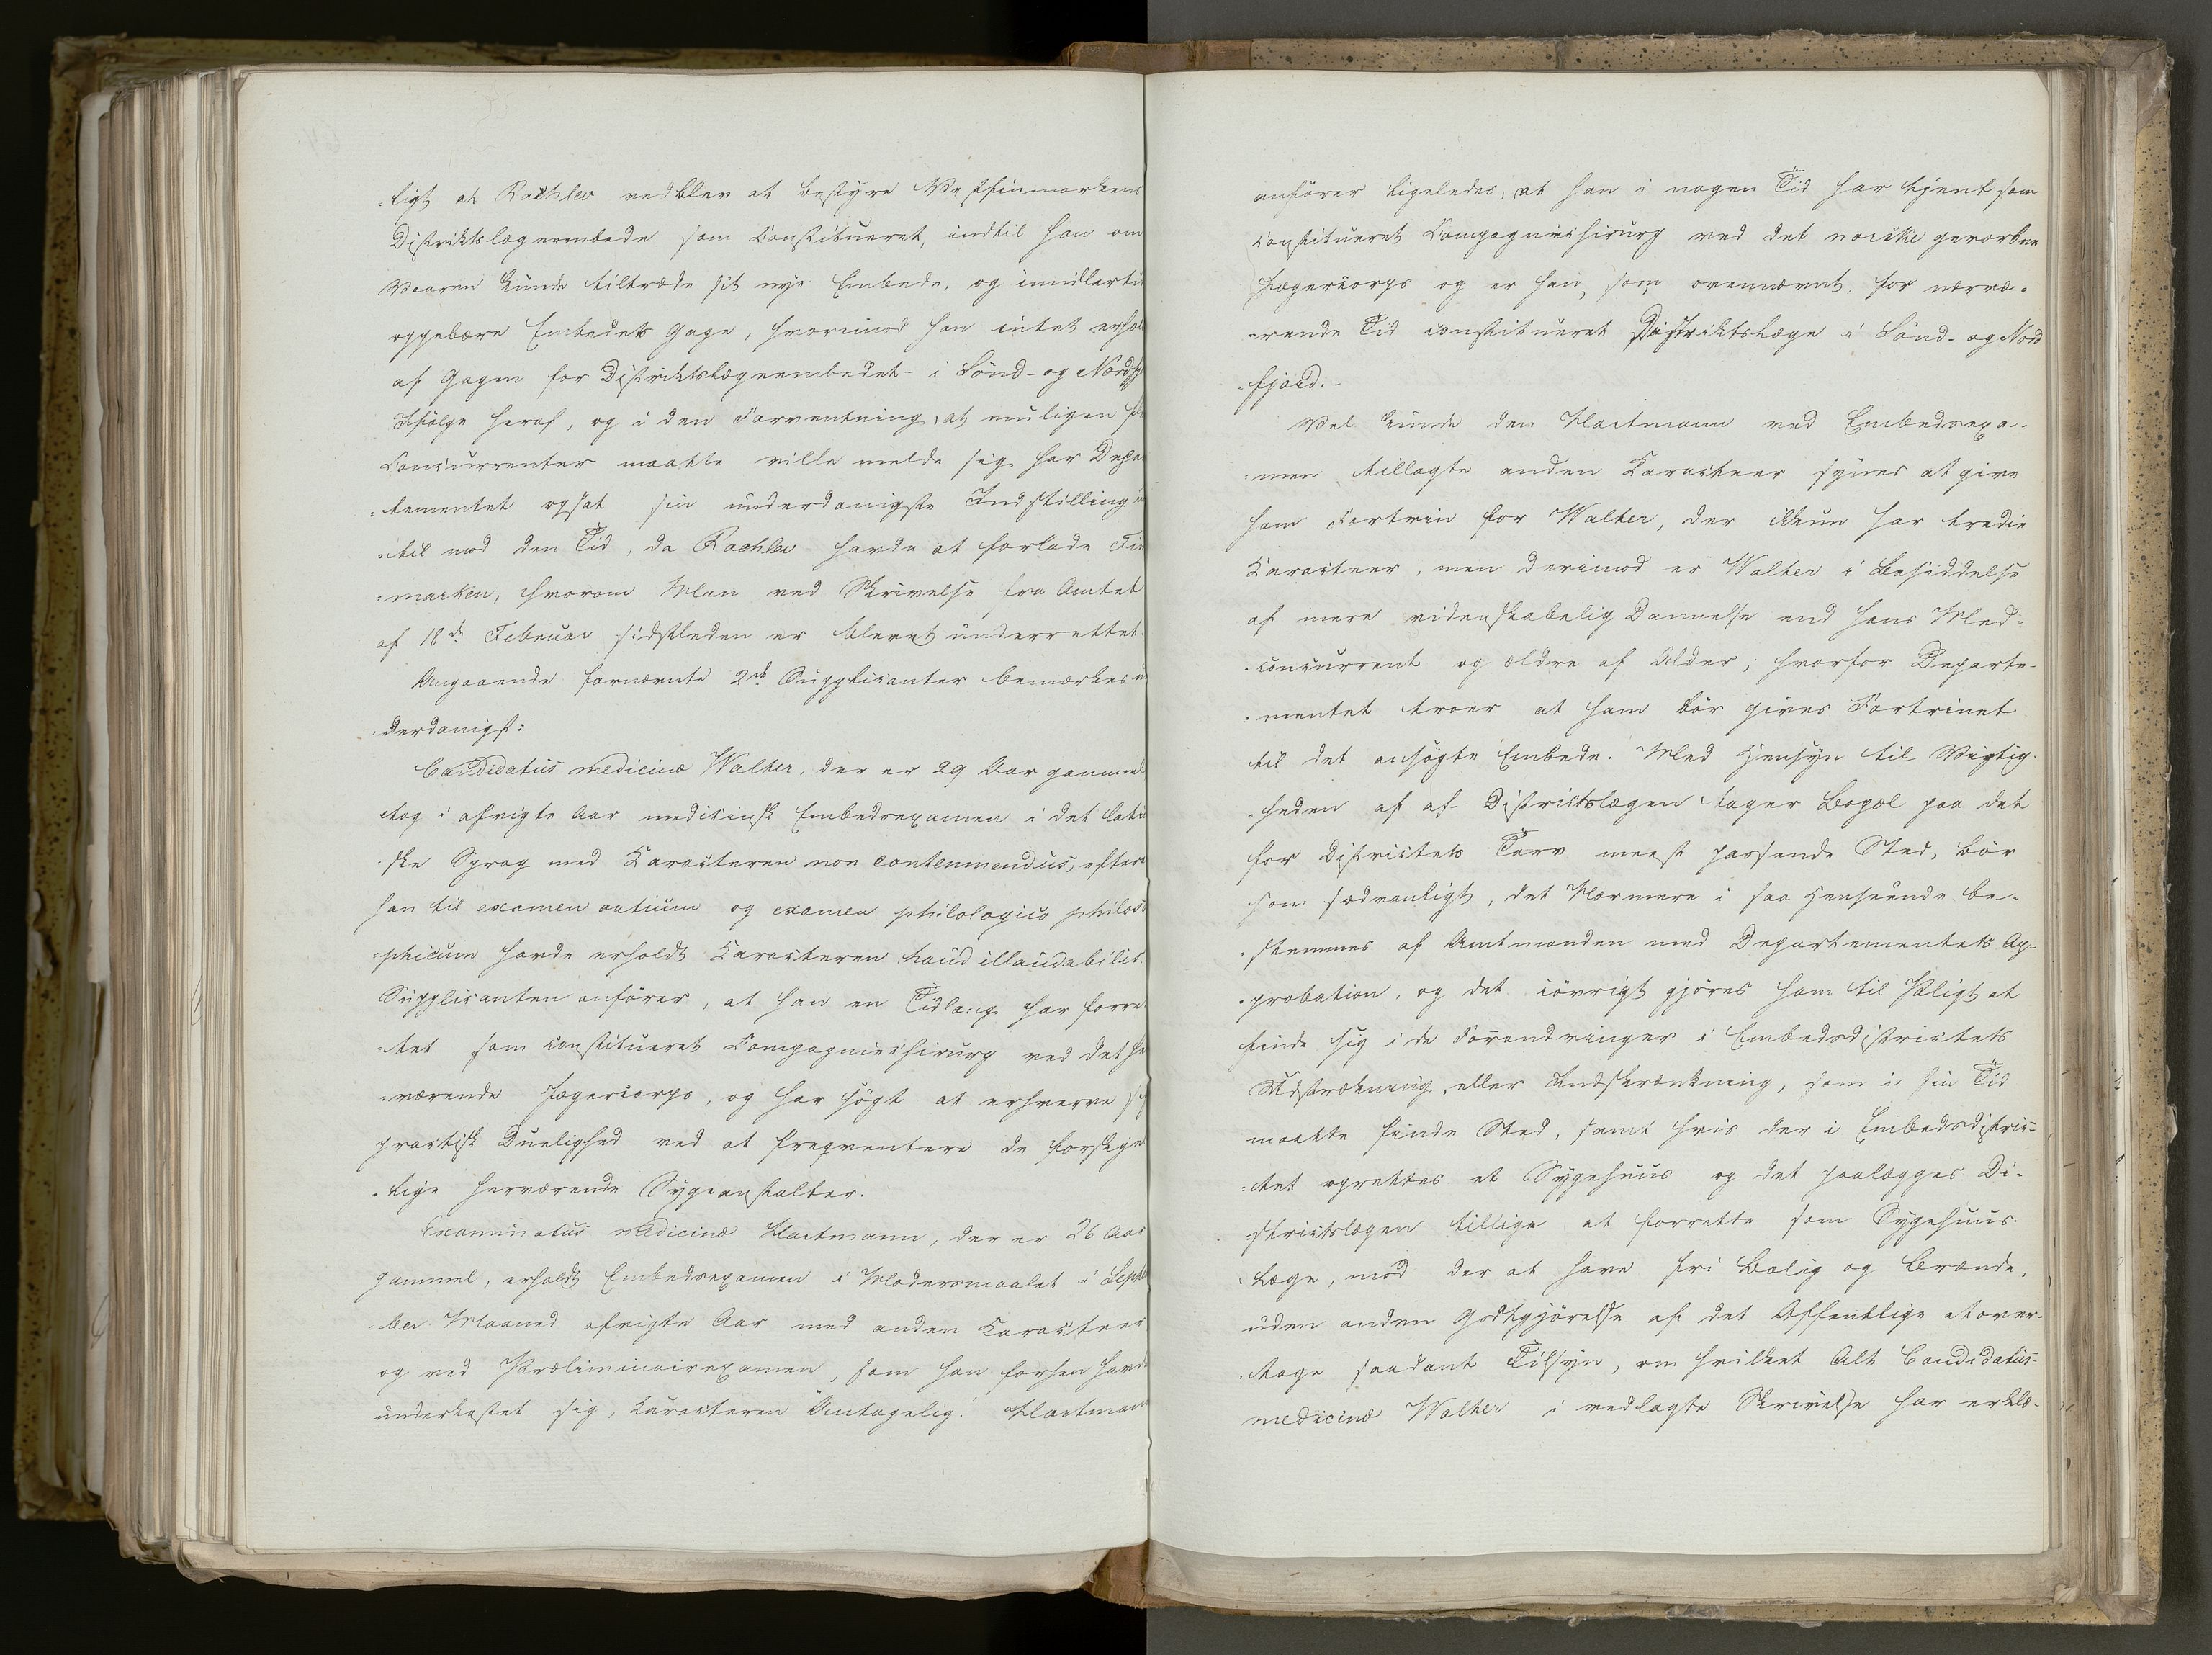 -ligt at Rachlew vedblev at bestyre Vestfinmarkens
Distriktslægeembede som Constitueret, indtil han om
Vaaren kunde tiltræde sit nye Embede, og imidlerti
oppebære Embedets Gage, hvorimod han intet erhol
af Gagen for Distriktslægeembedet i Sönd- og Nordfj
Ifölge heraf, og i den Forventning, at muligen fle
Concurrenter maatte ville melde sig har Depar
-tementet opsat sin underdanigste Indstilling in
-til mod den Tid, da Rachlew havde at forlade Fin
-marken, hvorom Man ved Skrivelse fra Amtet
af 18de Februar sidstleden er blevet underrettet.
Angaaende fornævnte 2de Supplicanter bemærkes un
-derdanigst:
Candidatus medicinæ Walther, der er 29 Aar gammel
tog i afvigte Aar medicinsk Embedsexamen i det lati
-ske Sprog med Caracteren non contemnendus, efter
han til examen artium og examen philologico philoso
-phicum havde erholdt Caracteren haud illaudabilis.
Supplicanten anförer, at han en Tidlang har forret
-tet som constitueret Compagniechirurg ved det he
-værende Jægercorps, og har sögt at erhverve sig
practisk Duelighed ved at freqventere de forskjel
-lige herværende Sygeanstalter.
Examinatus medicinæ Hartmann, der er 26 Aar
gammel, erholdt Embedsexamen i Modersmaalet i Septe
-ber Maaned afvigte Aar med anden Caracteer
og ved Præliminairexamen, som han forhen havde
underkastet sig, Caracteren "Antagelig." Hartmann
anförer ligeledes, at han i nogen Tid har tjent som
constitueret Compagniechirurg ved det norske gevorbne
Jægercorps og er han, som ovennævnt, for nærvæ-
-rende Tid constitueret Distriktslæge i Sönd- og Nord
-fjord.-
Vel kunde den Hartmann ved Embedsexa-
-men tillagte anden Caracteer synes at give
ham Fortrin for Walther, der ikkun har tredie
Caracteer, men derimod er Walther i Besiddelse
af mere videnskabelig Dannelse end hans Med-
-concurrent og ældre af Alder; hvorfor Departe-
-mentet troer at ham bör gives Fortrinet
til det ansögte Embede. Med Hensyn til Vigtig-
-heden af at Districtslægen tager Bopæl paa det
for Districtets Tarv meest passende Sted, bör
som sædvanligt, det Nærmere i saa Henseende be-
-stemmes af Amtmanden med Departementets Ap-
-probation, og det iövrigt gjöres ham til Pligt at
finde sig i de Forandringer i Embedsdistrictets
Udstrækning, eller Indskrænkning, som i sin Tid
maatte finde Sted, samt hvis der i Embedsdistric-
-tet oprettes et Sygehuus og det paalægges Di-
-strictslægen tillige at forrette som Sygehuus-
-læge, mod der at have fri Bolig og Brænde,
uden anden Godtgjörelse af det Offentlige at over-
-tage saadant Tilsyn, om hvilket Alt Candidatus
medicinæ Walther i vedlagte Skrivelse har erklæ-